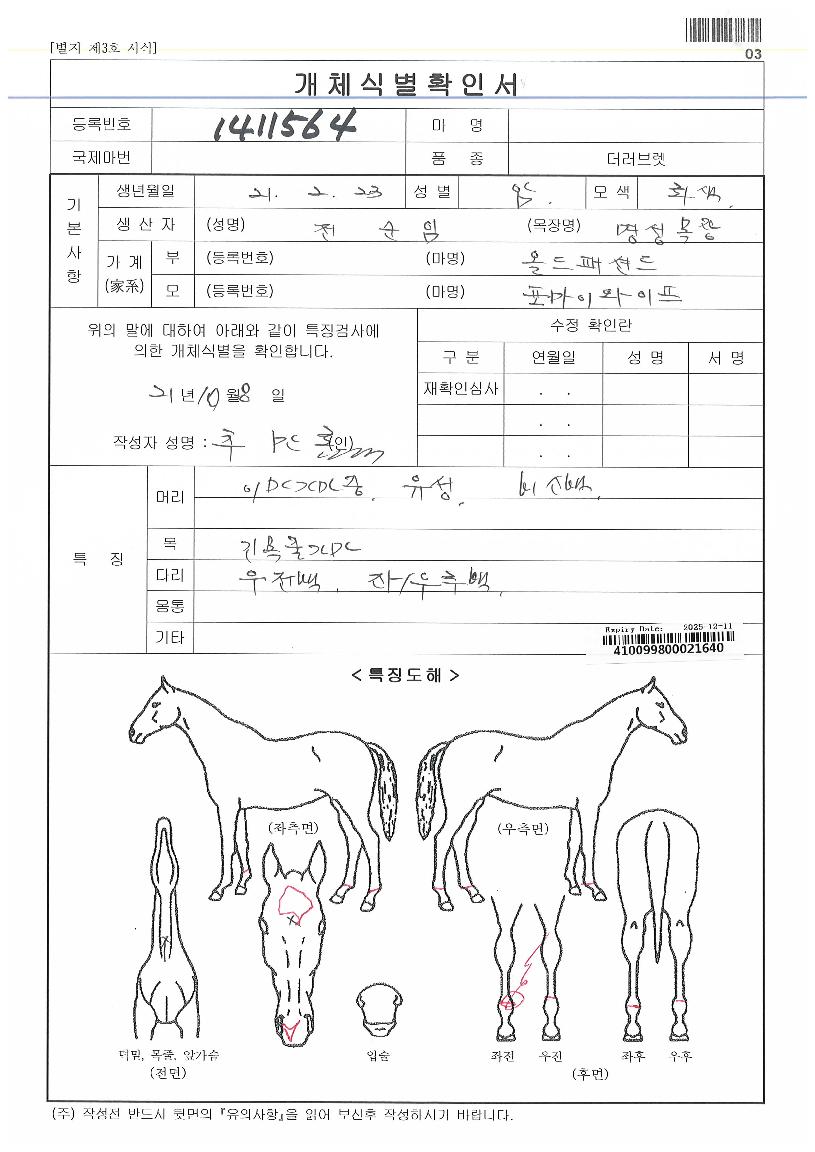 [별지 제3호 서식]
03
개체식별확인서
등록번호 1411564 마 명
국제마번 품 종 더러브렛
기본사항
생년월일 21. 2. 23 성 별 암. 모 색 회색.
생 산 자 (성명) 전 순 임 (목장명) 명성목장
가 계 (家系) 부 (등록번호) (마명) 올드패션드
모 (등록번호) (마명) 포마이와이프
위의 말에 대하여 아래와 같이 특징검사에
의한 개체식별을 확인합니다.
21년 10월 8일
작성자 성명 : 추 (인)
수정 확인란
구 분 연월일 성 명 서 명
재확인심사 . .
. .
. .
특 징
머리 유성.
목
다리 우전백. 좌/우후백.
몸통
기타
Expiry Date: 2025-12-11
410099800021640
< 특징도해 >
(좌측면) (우측면)
턱밑, 목줄, 앞가슴 입술 좌전 우전 좌후 우후
(전면) (후면)
(주) 작성전 반드시 뒷면의 『유의사항』을 읽어 보신후 작성하시기 바랍니다.